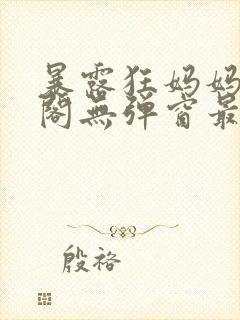 暴露狂妈妈
阁无弹窗最
殷袼